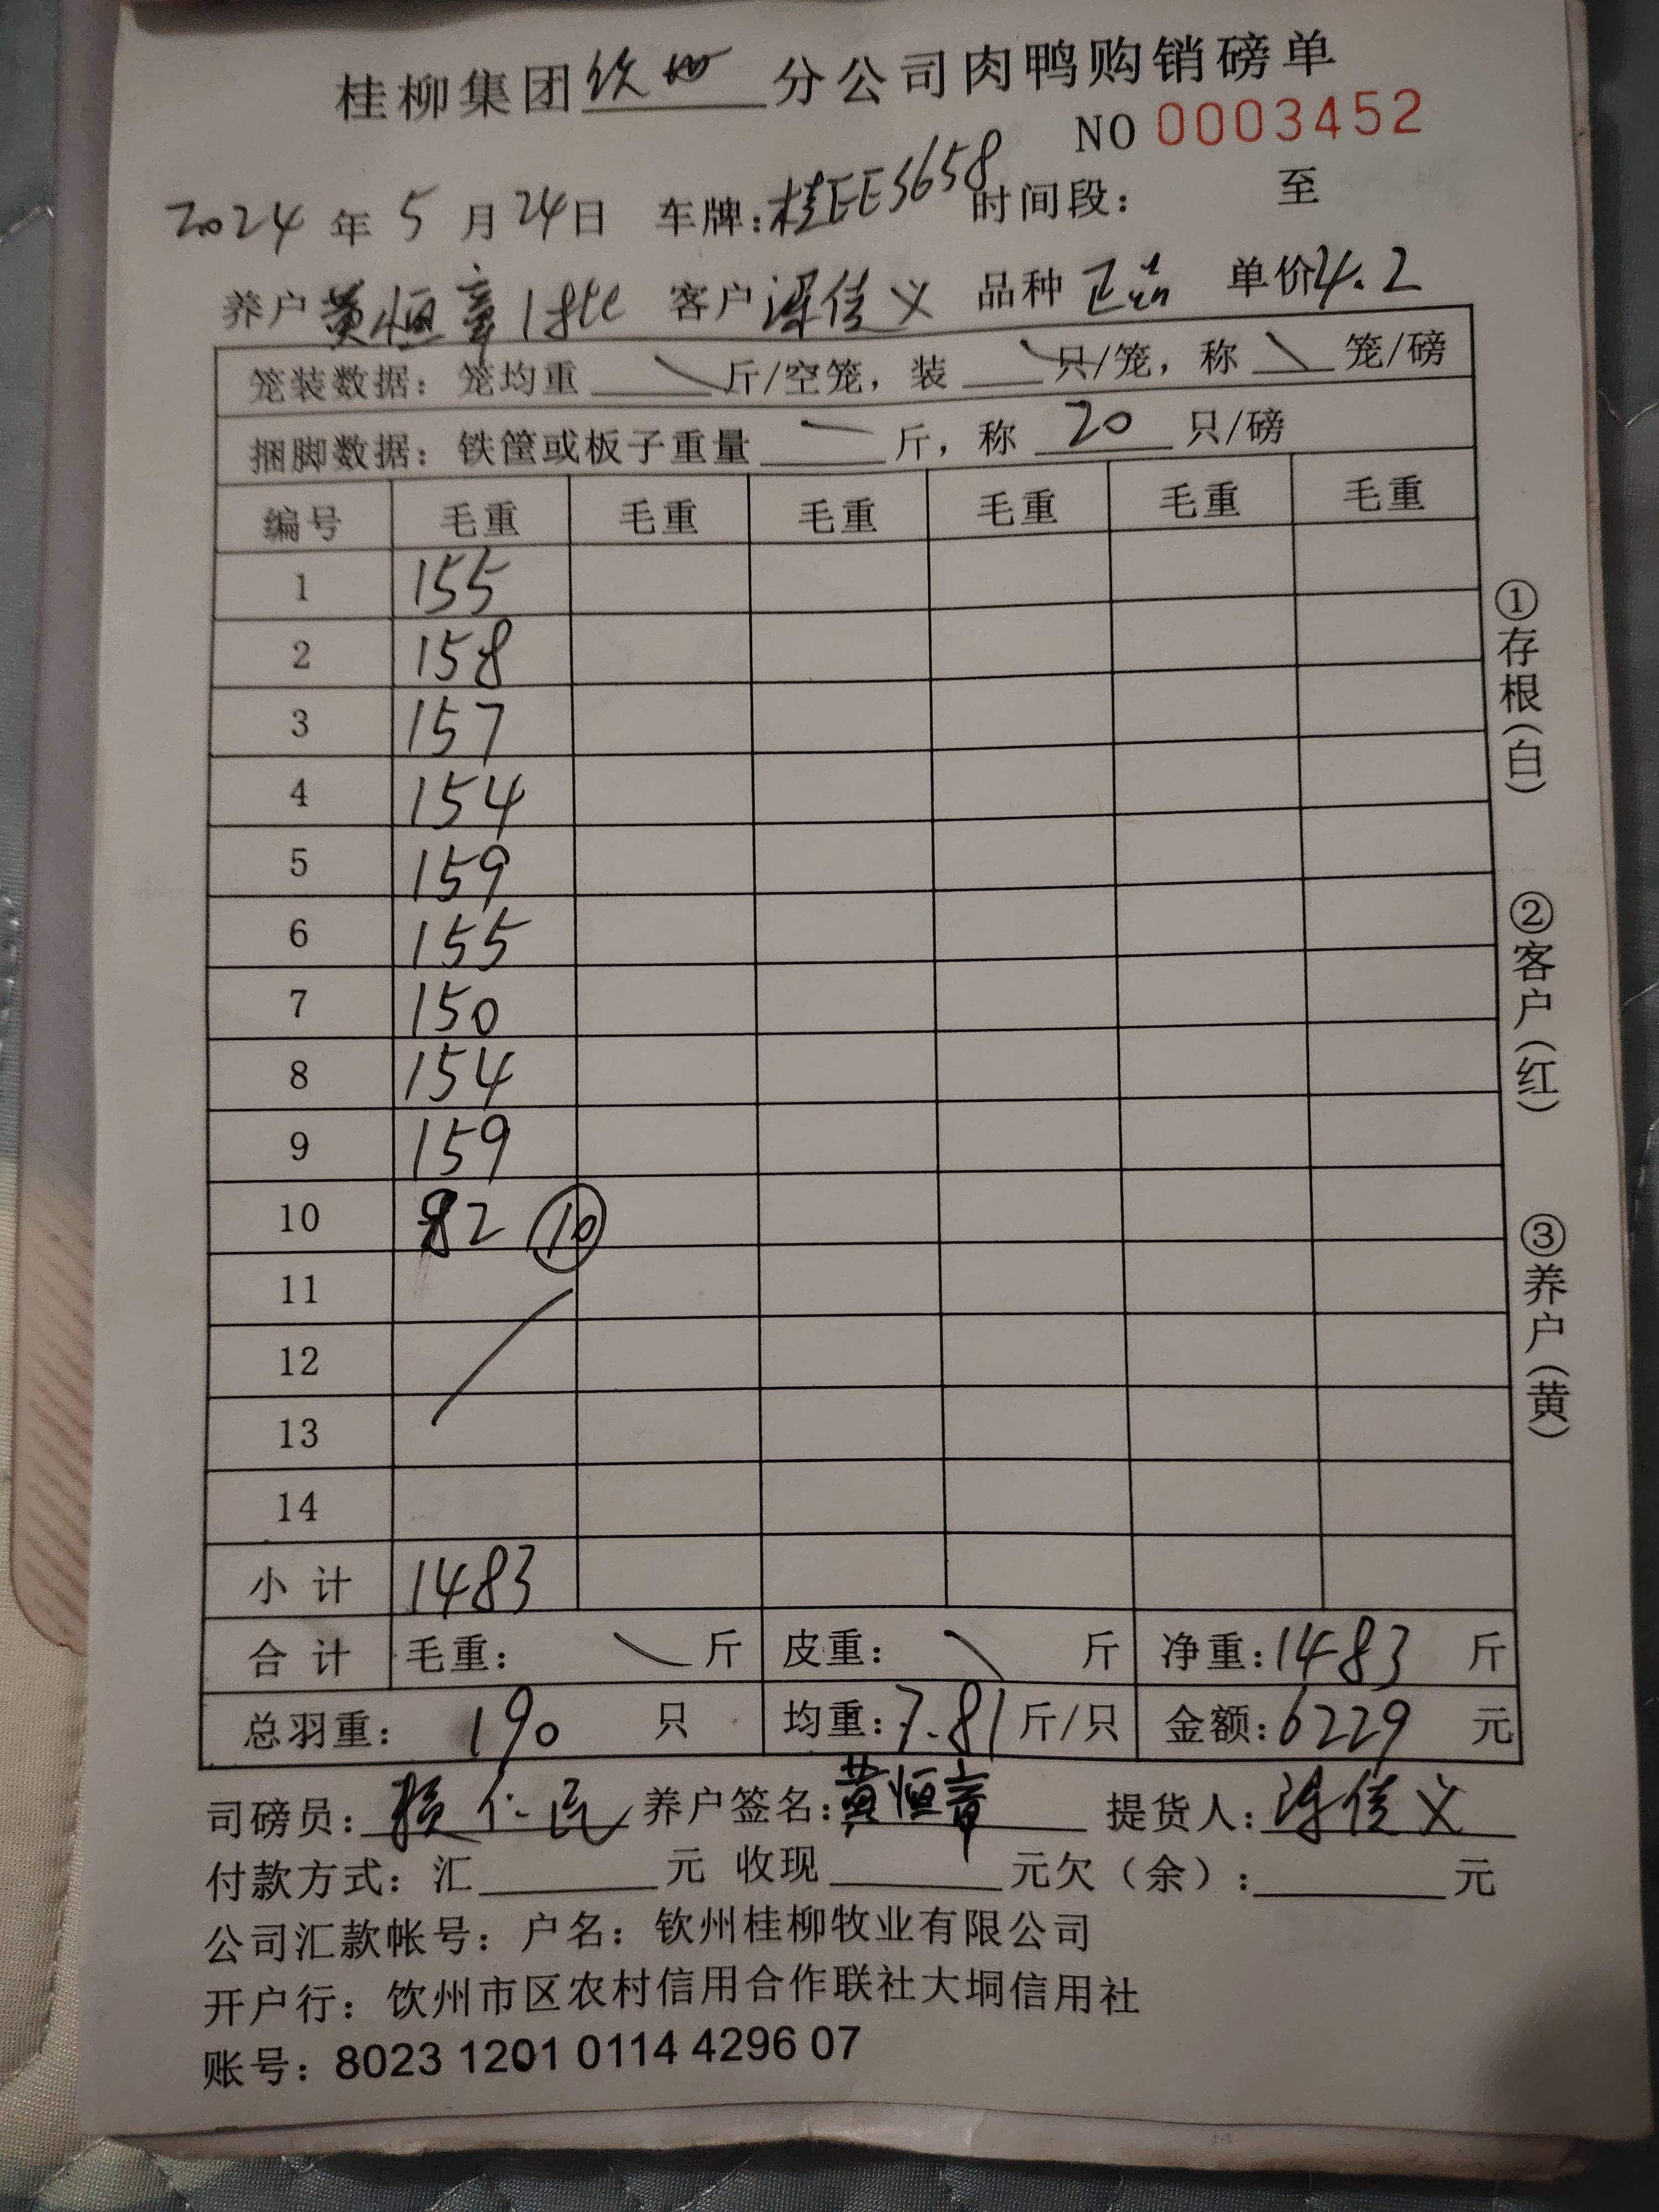 桂柳集团钦州分公司肉鸭购销磅单
NO 0003452
2024年5月24日 车牌:桂EE3658 时间段: 至
养户黄恒章18批 客户 佳义 品种 正品 单价4.2
笼装数据: 笼均重 \ 斤/空笼, 装 \ 只/笼, 称 \ 笼/磅
捆脚数据: 铁筐或板子重量 一 斤, 称 20 只/磅
编号 毛重 毛重 毛重 毛重 毛重 毛重
1 155
2 158
3 157
4 154
5 159
6 155
7 150
8 154
9 159
10 82 ⑩
11
12
13
14
小计 1483
合计 毛重: \ 斤 皮重: \ 斤 净重:1483 斤
总羽重: 190 只 均重:7.81斤/只 金额:6229 元
司磅员: 仁 养户签名:黄恒章 提货人: 佳义
付款方式: 汇 元 收现 元欠(余): 元
公司汇款帐号: 户名: 钦州桂柳牧业有限公司
开户行: 钦州市区农村信用合作联社大垌信用社
账号: 8023 1201 0114 4296 07
①存根(白)
②客户(红)
③养户(黄)